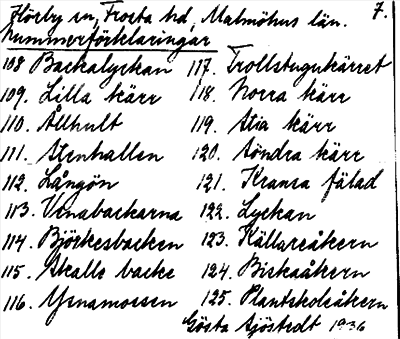 7.
Hörby sn, Frosta hd, Malmöhus län.
Nummerförklaringar
108 Backalyckan 117. Trollstugukärret
109. Lilla kärr 118. Norra kärr
110. Ållhult 119. Stia kärr
111. Stenhallen 120. Söndra kärr
112. Långön 121. Kransa fälad
113. Venabackarna 122. Lyckan
114. Björkesbacken 123. Källareåkern
115. Skalle backe 124. Biskaåkern
116. Ysnamossen 125. Plantskoleåkern
Gösta Sjöstedt 1936